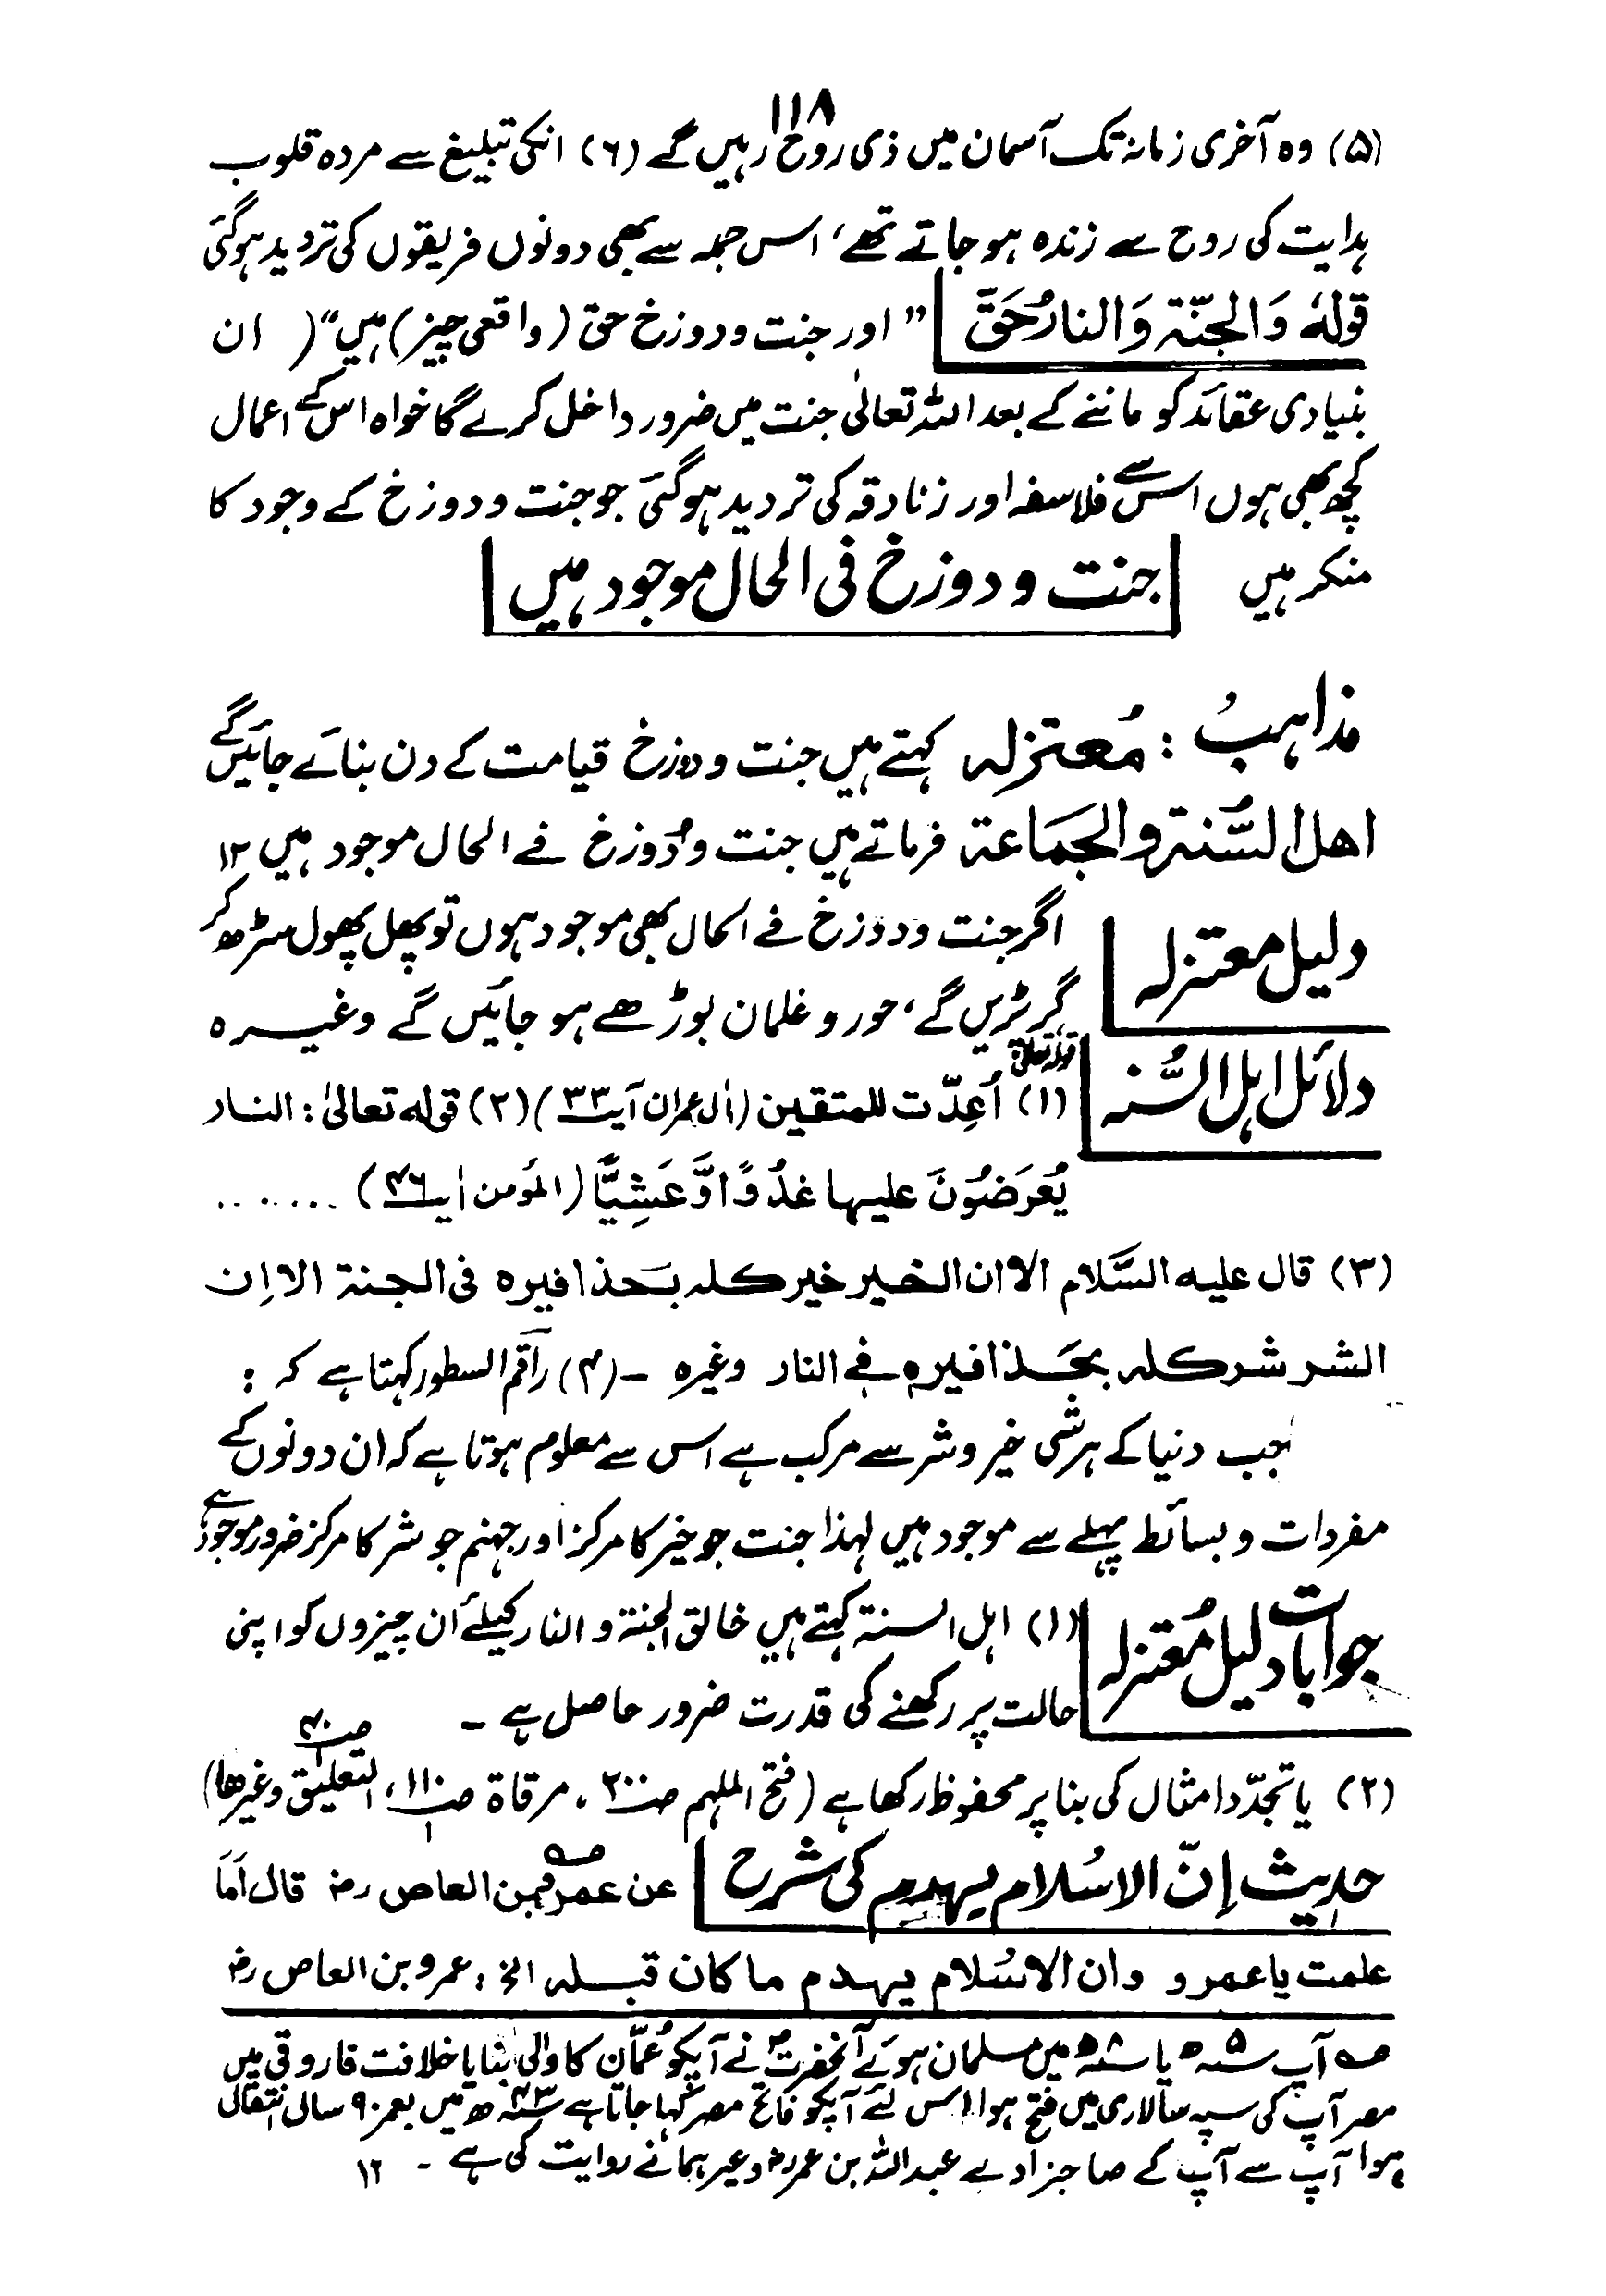 ۱۱۸
(۵) وہ آخری زمانہ تک آسمان میں ذی روح رہیں گے (۶) انکی تبلیغ سے مردہ قلوب
ہدایت کی روح سے زندہ ہو جاتے تھے، اس جملہ سے بھی دونوں فریقوں کی تردید ہوگئی
قولہٗ وَالجنّۃ وَالنارُحَقّ " اور جنت و دوزخ حق (واقعی چیز) ہیں" ( ان
بنیادی عقائد کو ماننے کے بعد اللہ تعالیٰ جنت میں ضرور داخل کرے گا خواہ اس کے اعمال
کچھ بھی ہوں اس سے فلاسفہ اور زنادقہ کی تردید ہوگئی جو جنت و دوزخ کے وجود کا
منکر ہیں جنت و دوزخ فی الحال موجود ہیں
مذاہبُ : مُعتزلہ کہتے ہیں جنت و دوزخ قیامت کے دن بنائے جائیں گے
اھل السُّنۃ والجَمَاعۃ فرماتے ہیں جنت و دُوزخ فے الحال موجود ہیں ۱۲
دلیل معتزلہ اگر جنت و دوزخ فے الحال بھی موجود ہوں تو پھل پھول سڑھ کر
گر پڑیں گے، حور و غلمان بوڑھے ہو جائیں گے وغیرہ
دلائل اہل السُّنہ قولہ تعالیٰ (۱) اُعِدّت للمتقین (اٰل عمران آیت ۳۳) (۲) قولہ تعالیٰ : النار
یُعَرَضُونَ علیہا غدُوًّا وَّعَشِیًّا (المؤمن اٰیت ۴۶) .......
(۳) قال علیہ السَّلام الا ان الخیر خیر کلہ بحذافیرہ فی الجنۃ الا اِن
الشر شر کلہ بحَذافیرہ فے النار وغیرہ ۔ (۴) راقم السطور کہتا ہے کہ :
جب دنیا کے ہر شی خیر و شر سے مرکب ہے اس سے معلوم ہوتا ہے کہ ان دونوں کے
مفردات و بسائط پہلے سے موجود ہیں لہذا جنت جو خیر کا مرکز اور جہنم جو شر کا مرکز ضرور موجود ہے
جوابات دلیل مُعتزلہ (۱) اہل السنۃ کہتے ہیں خالق الجنۃ و النار کیلئے ان چیزوں کو اپنی
حالت پر رکھنے کی قدرت ضرور حاصل ہے ۔
(۲) یا تجدّد امثال کی بنا پر محفوظ رکھا ہے (فتح الملہم صـ۲۰۰ ، مرقاۃ صـ۱۱۰/۱ ، التعلیق صـ۴۰/۱ وغیرھا)
حدیث اِنّ الاسُلام یہدم کی شرح عن عمرو بن العاص رض قال اَمَا
علمت یا عمرو وان الاسُلام یہدم ما کان قبلہ الخ ، عمرو بن العاص رض
صہ آپ ۵ سنہ یا ۸ سنہ میں مسلمان ہوئے آنحضرتؐ نے آپکو عُمّان کا والی بنایا خلافت فاروقی میں
مصر آپ کی سپہ سالاری میں فتح ہوا اس لئے آپکو فاتح مصر کہا جاتا ہے ۴۳ سنہ ھ میں بعمر ۹۰ سال انتقال
ہوا آپ سے آپ کے صاحبزادے عبداللہ بن عمر رض وغیرہمانے روایت کی ہے ۔ ۱۲